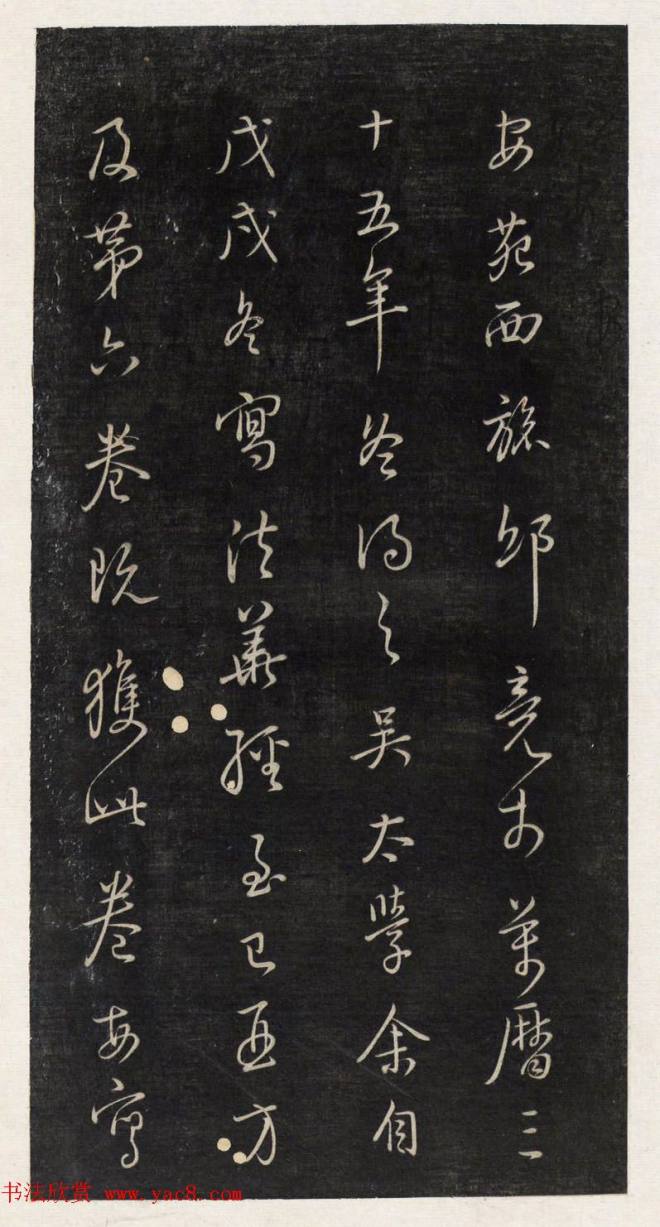 安苑西旅邸竟於萬曆三
十五年冬得之吳太學余自
戊戌冬寫法華經至己酉方
及第六卷既獲此卷每寫
书法欣赏 www.yac8.com